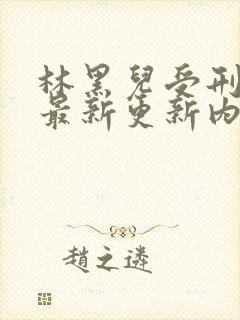 林黑兒受刑
最新更新内
趙之遴